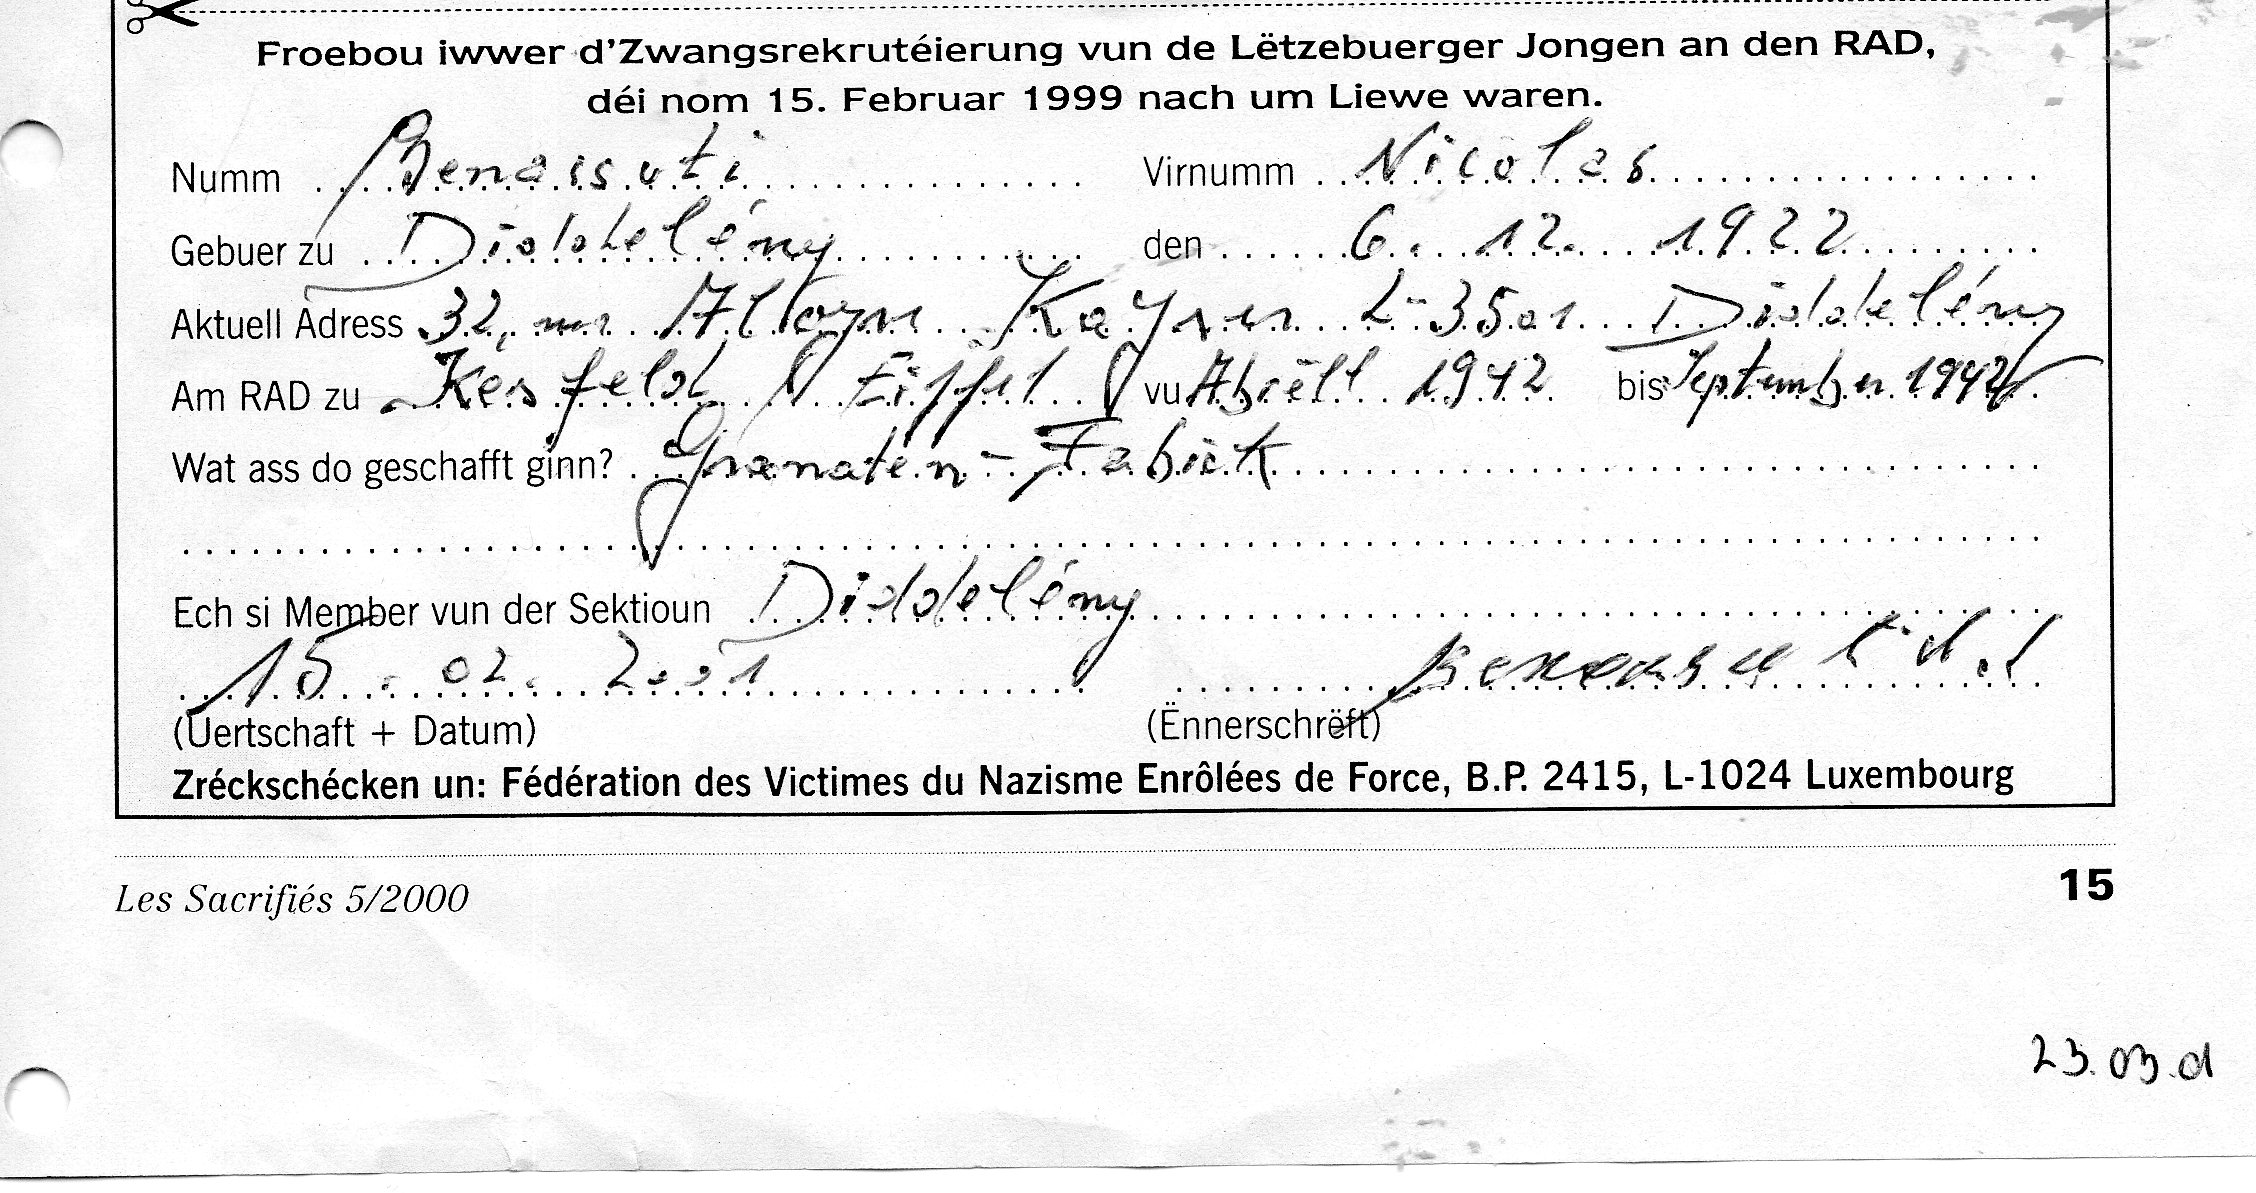 Froebou iwwer d'Zwangsrekrutéierung vun de Lëtzebuerger Jongen an den RAD,
déi nom 15. Februar 1999 nach um Liewe waren.
Numm Benassuti Virnumm Nicolas
Gebuer zu Diddeléng den 6. 12. 1922
Aktuell Adress 32, rue Kayser L-3501 Diddeléng
Am RAD zu Kesfeld Eiffel vu Abrëll 1942 bis September 1942
Wat ass do geschafft ginn? Granaten-Fabick
Ech si Member vun der Sektioun Diddeléng
15. 02. 2001
(Uertschaft + Datum) (Ënnerschrëft)
Zréckschécken un: Fédération des Victimes du Nazisme Enrôlées de Force, B.P. 2415, L-1024 Luxembourg
Les Sacrifiés 5/2000 15
23.03.01